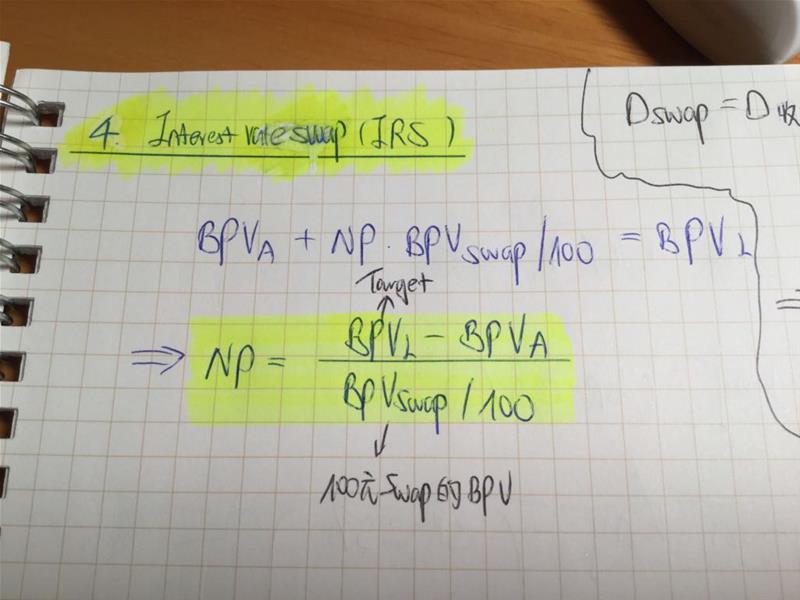 4. Interest rate swap (IRS)
Dswap = D收
BPV_A + NP · BPV_swap /100 = BPV_L
Target
⇒ NP = (BPV_L − BPV_A) / (BPV_swap / 100)
100元 Swap 的 BPV